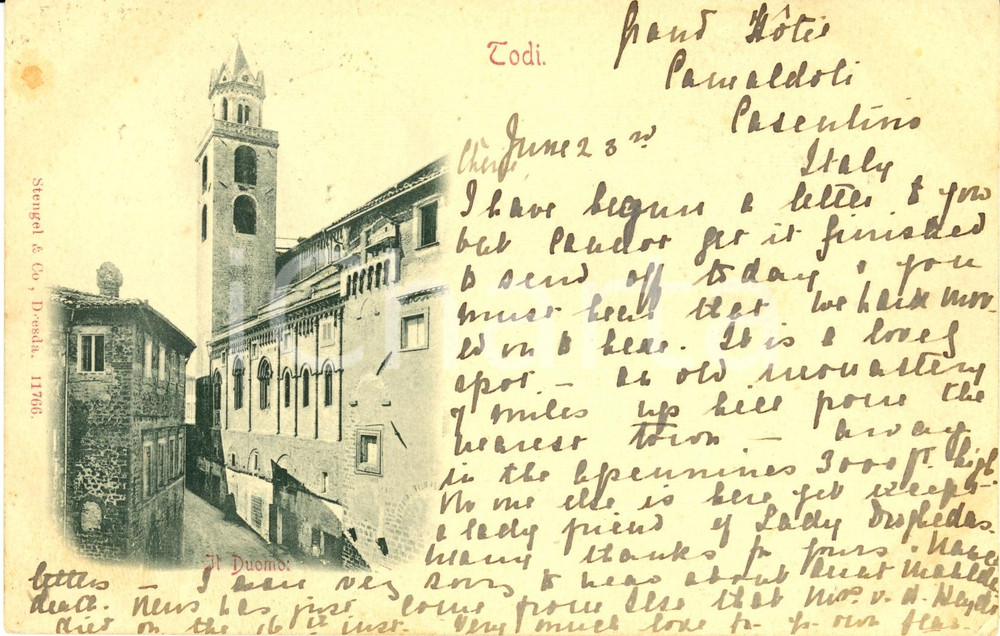 Todi.
Stengel & Co., Dresda. 11766.
Il Duomo.
Grand Hôtel
Camaldoli
Casentino
Italy
June 23rd
I have begun a letter to you
but cannot get it finished
to send off today & you
must hear that we have mov-
ed on to here. It is a lovely
spot – an old monastery
7 miles up hill from the
nearest town – away
in the Apennines 3000 ft. high
No one else is here yet except
a lady friend of Lady Droghedas.
Many thanks for yours.
letters – I was very sorry to hear about Aunt
death. News has just come from Ilse that Mrs. v. d.
died on the 16th inst. Very much love to yr own